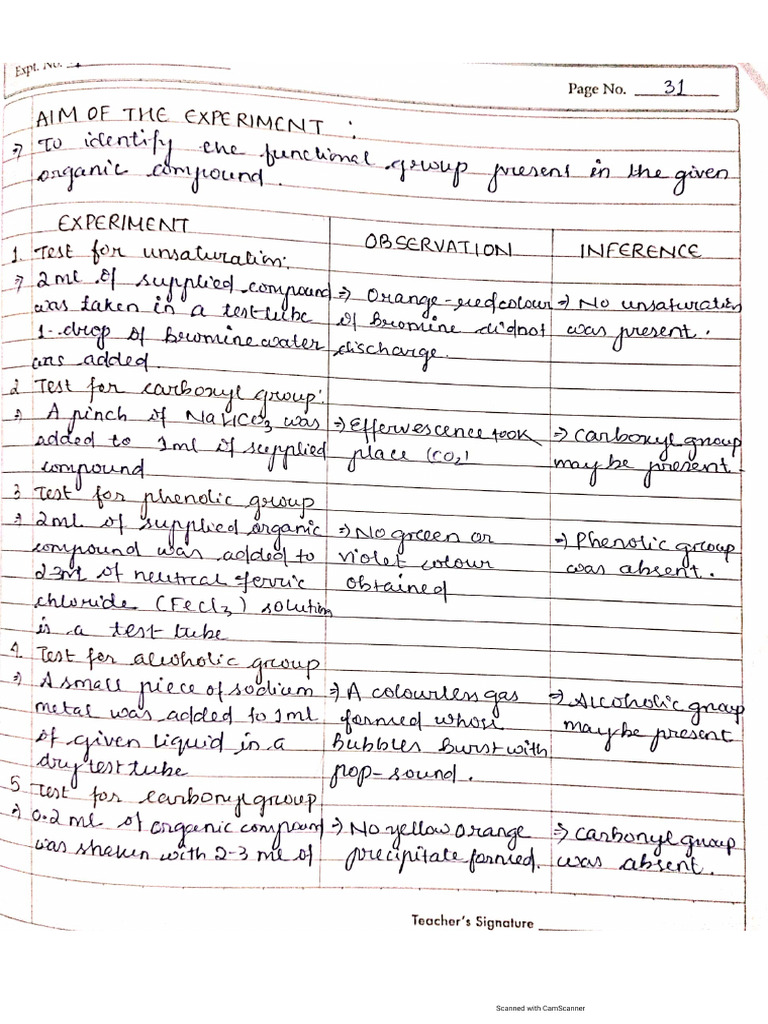 Expt. No.
Page No. 31
AIM OF THE EXPERIMENT :
⇒ To identify the functional group present in the given
organic compound.
EXPERIMENT | OBSERVATION | INFERENCE
1. Test for unsaturation:
⇒ 2ml of supplied compound | ⇒ Orange-red colour | ⇒ No unsaturation
was taken in a test tube | of bromine did not | was present.
1-drop of bromine water | discharge.
was added.
2 Test for carboxyl group:
⇒ A pinch of NaHCO3 was | ⇒ Effervescence took | ⇒ Carboxyl group
added to 1ml of supplied | place (CO2) | may be present
compound
3 Test for phenolic group
⇒ 2ml of supplied organic | ⇒ No green or | ⇒ Phenolic group
compound was added to | violet colour | was absent.
2-3ml of neutral ferric | obtained
chloride (FeCl3) solution
is a test tube
4. Test for alcoholic group
⇒ A small piece of sodium | ⇒ A colourless gas | ⇒ Alcoholic group
metal was added to 1ml | formed whose | may be present
of given liquid in a | bubbles burst with
dry test tube | pop-sound.
5 Test for carbonyl group
⇒ 0.2 ml of organic compound | ⇒ No yellow orange | ⇒ Carbonyl group
was shaken with 2-3 ml of | precipitate formed. | was absent.
Teacher's Signature
Scanned with CamScanner